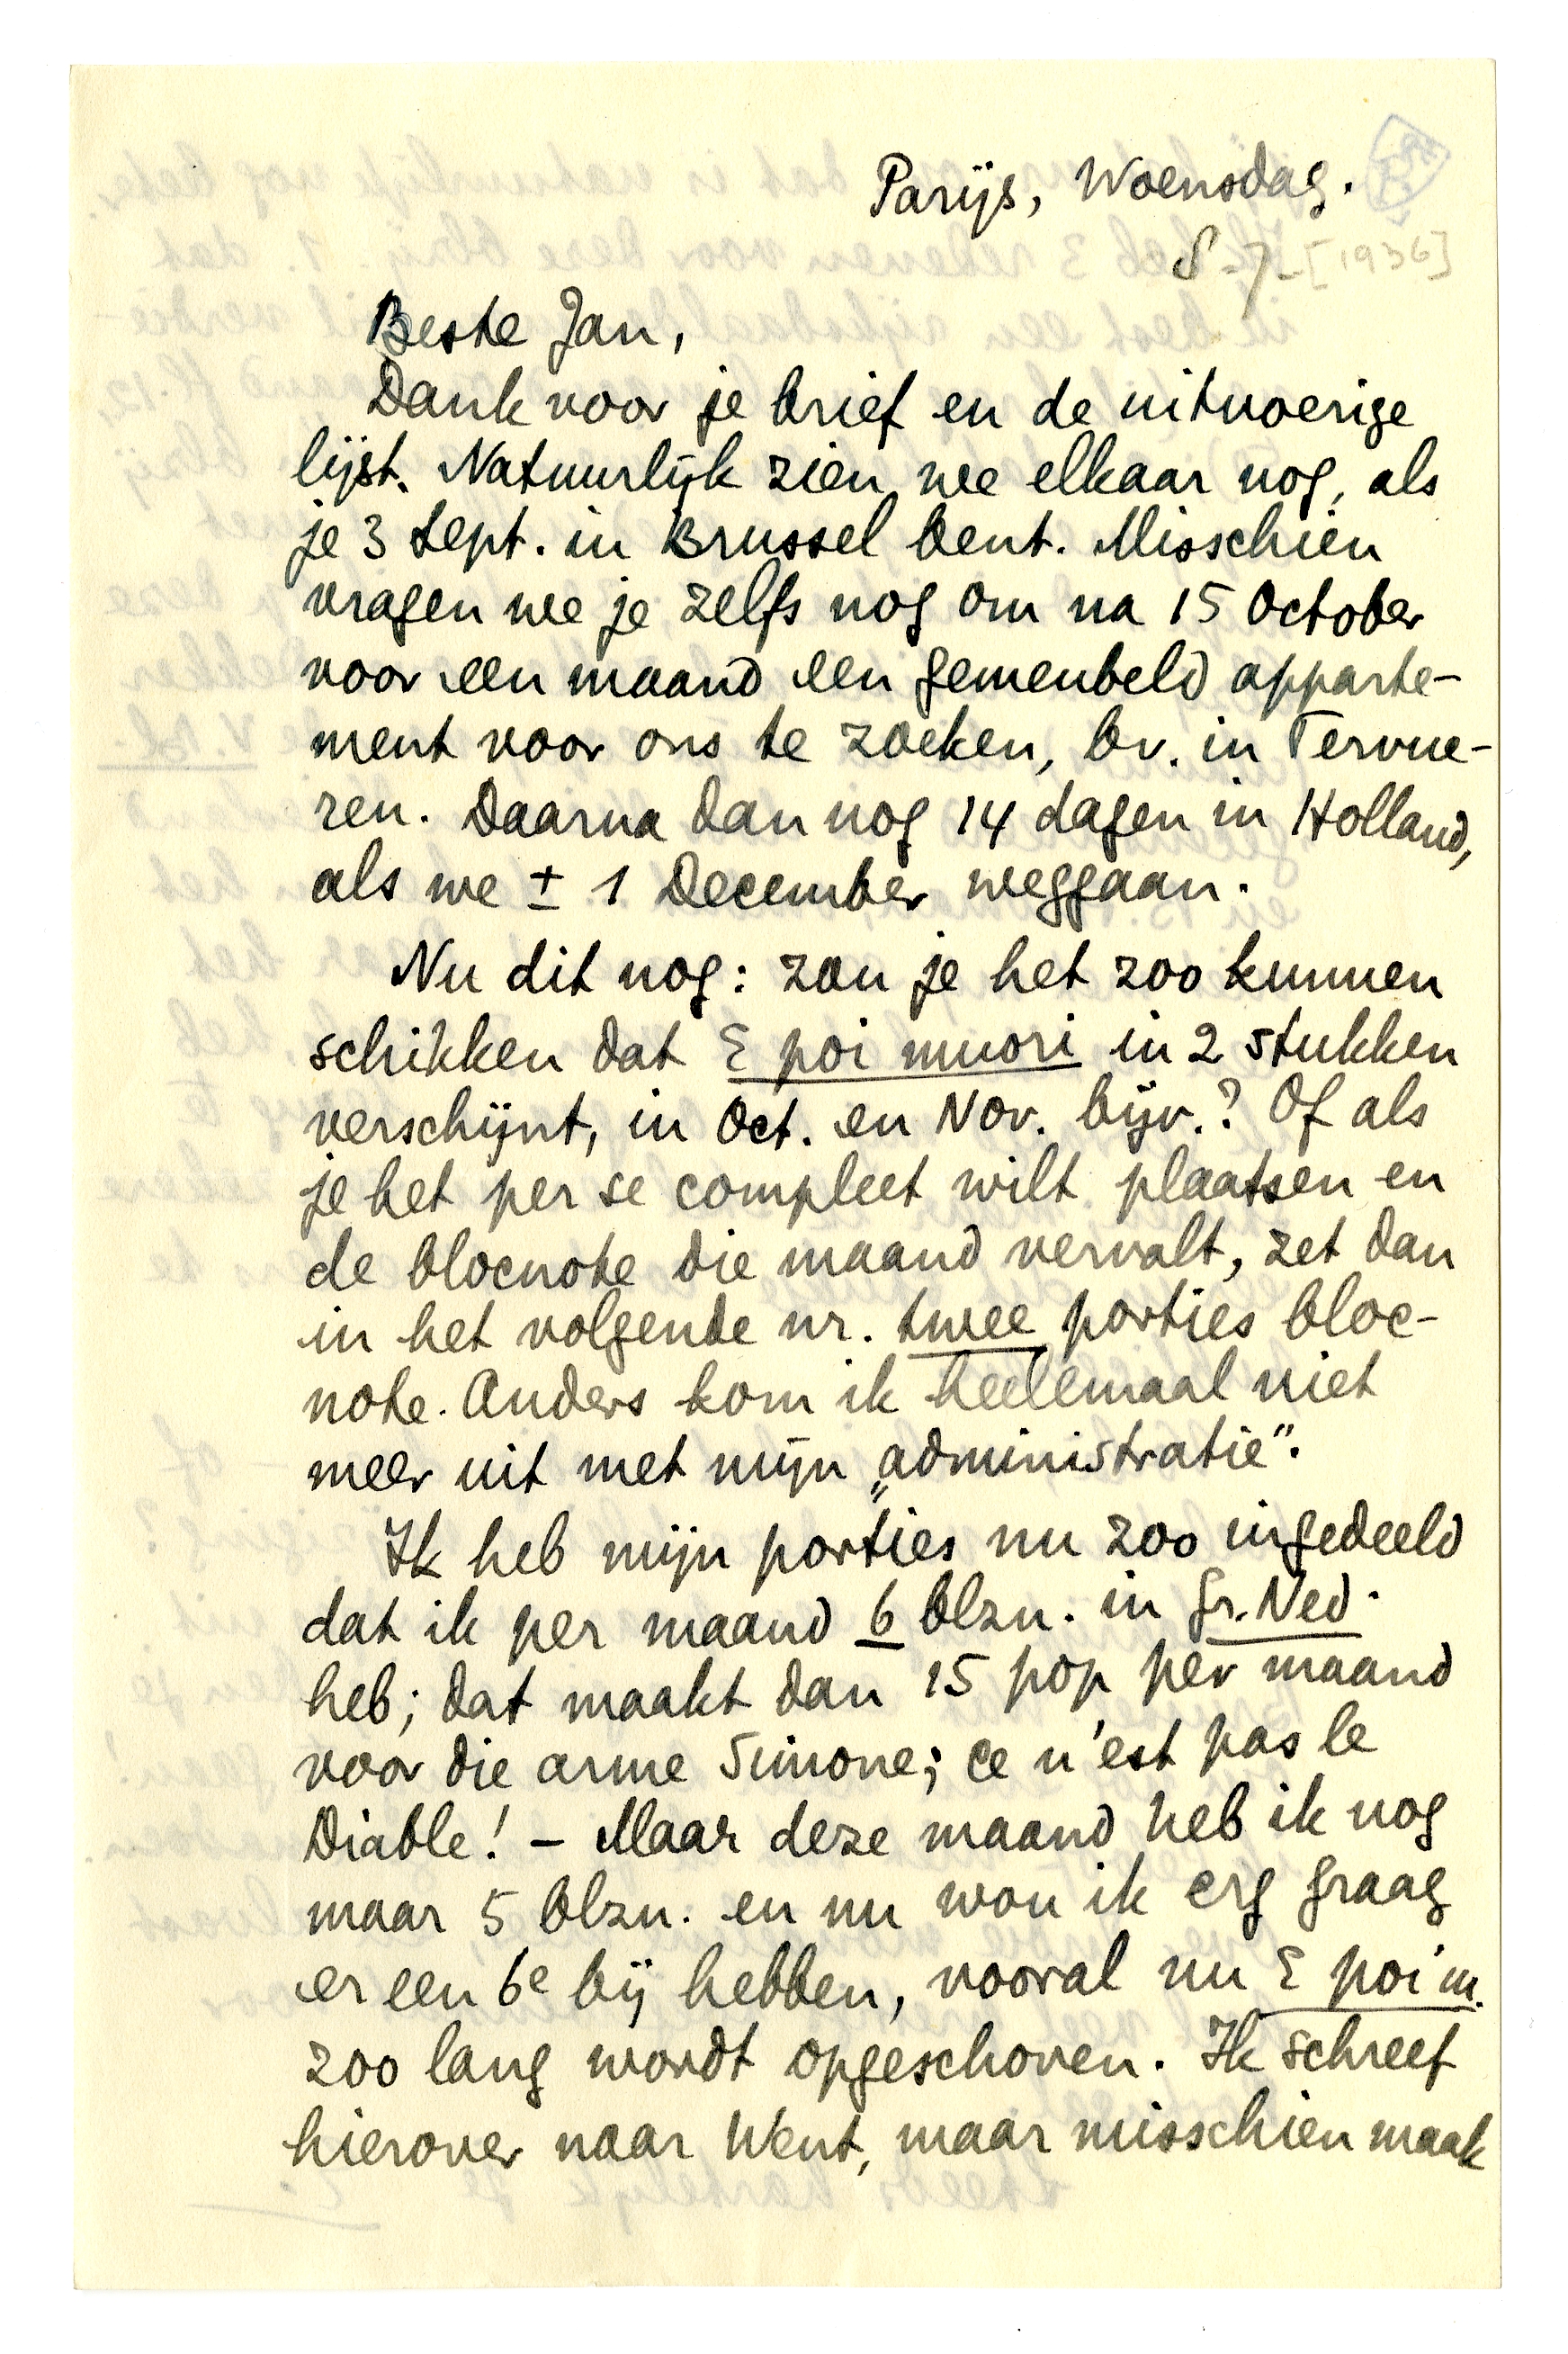 Parijs, Woensdag.
8-7-[1936]
Beste Jan,
Dank voor je brief en de uitvoerige
lijst. Natuurlijk zien we elkaar nog, als
je 3 Sept. in Brussel bent. Misschien
vragen we je zelfs nog om na 15 October
voor een maand een gemeubeld apparte-
ment voor ons te zoeken, bv. in Tervue-
ren. Daarna dan nog 14 dagen in Holland,
als we ± 1 December weggaan.
Nu dit nog: zou je het zoo kunnen
schikken dat E poi muori in 2 stukken
verschijnt, in Oct. en Nov. bijv.? Of als
je het per se compleet wilt plaatsen en
de blocnote die maand vervalt, zet dan
in het volgende nr. twee porties bloc-
note. Anders kom ik heelemaal niet
meer uit met mijn „administratie".
Ik heb mijn porties nu zoo ingedeeld
dat ik per maand 6 blzn. in Gr. Ned.
heb; dat maakt dan 15 pop per maand
voor die arme Simone; ce n'est pas le
Diable! – Maar deze maand heb ik nog
maar 5 blzn. en nu wou ik erg graag
er een 6e bij hebben, vooral nu E poi m.
zoo lang wordt opgeschoven. Ik schreef
hierover naar Went, maar misschien maak